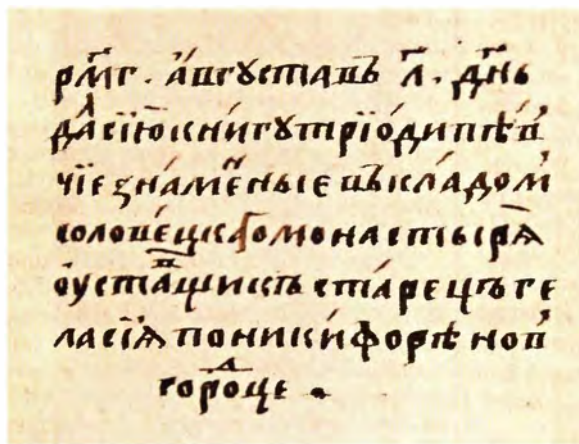 рмг. августавъ л. днь
далсїюкнигꙋтрїодипѣв
чїе знаменые въкладом
соловецкагомонастырѧ
оуставщикъ старецъ ге
ласїѧ поникифорѣ нов
городце.